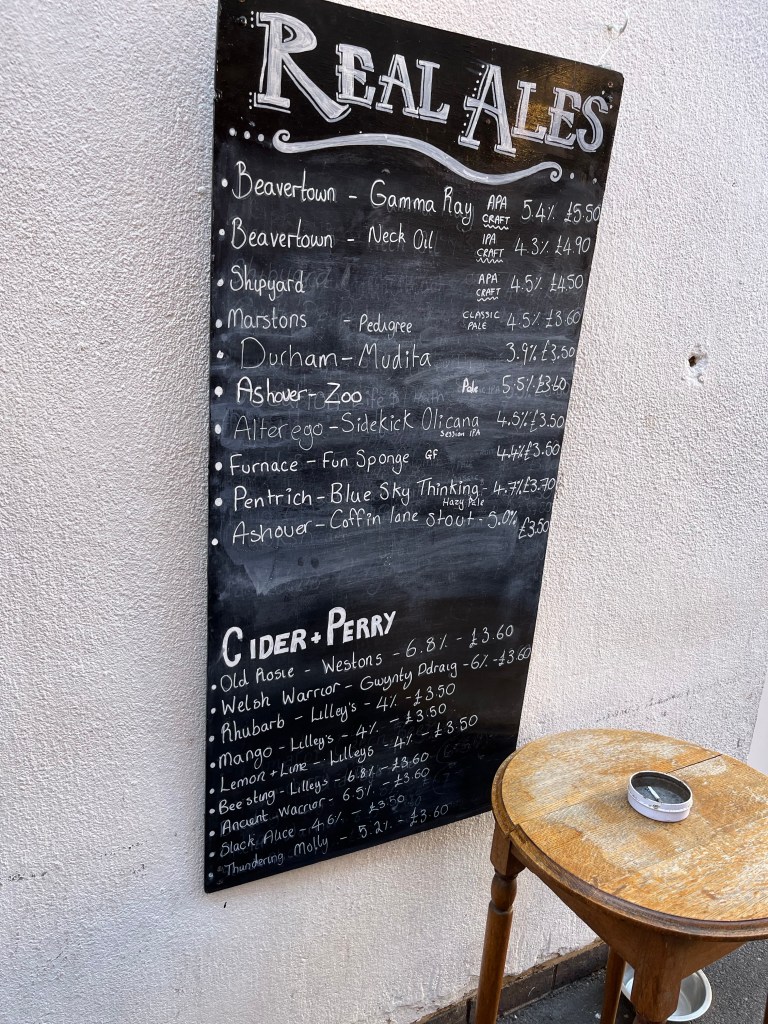 REAL ALES
• Beavertown - Gamma Ray APA CRAFT 5.4% £5.50
• Beavertown - Neck Oil IPA CRAFT 4.3% £4.90
• Shipyard APA CRAFT 4.5% £4.50
• Marstons - Pedigree CLASSIC PALE 4.5% £3.60
• Durham - Mudita 3.9% £3.50
• Ashover - Zoo Pale 5.5% £3.60
• Alter ego - Sidekick Olicana Session IPA 4.5% £3.50
• Furnace - Fun Sponge GF 4.4% £3.50
• Pentrich - Blue Sky Thinking - Hazy Pale 4.7% £3.70
• Ashover - Coffin lane stout - 5.0% £3.50
CIDER + PERRY
• Old Rosie - Westons - 6.8% - £3.60
• Welsh Warrior - Gwynty Ddraig - 6% - £3.60
• Rhubarb - Lilley's - 4% - £3.50
• Mango - Lilley's - 4% - £3.50
• Lemon + Lime - Lilleys - 4% - £3.50
• Bee sting - Lilleys - 6.8% - £3.60
• Ancient Warrior - 6.5% - £3.60
• Slack Alice - 4.6% - £3.50
• Thundering Molly - 5.2% - £3.60